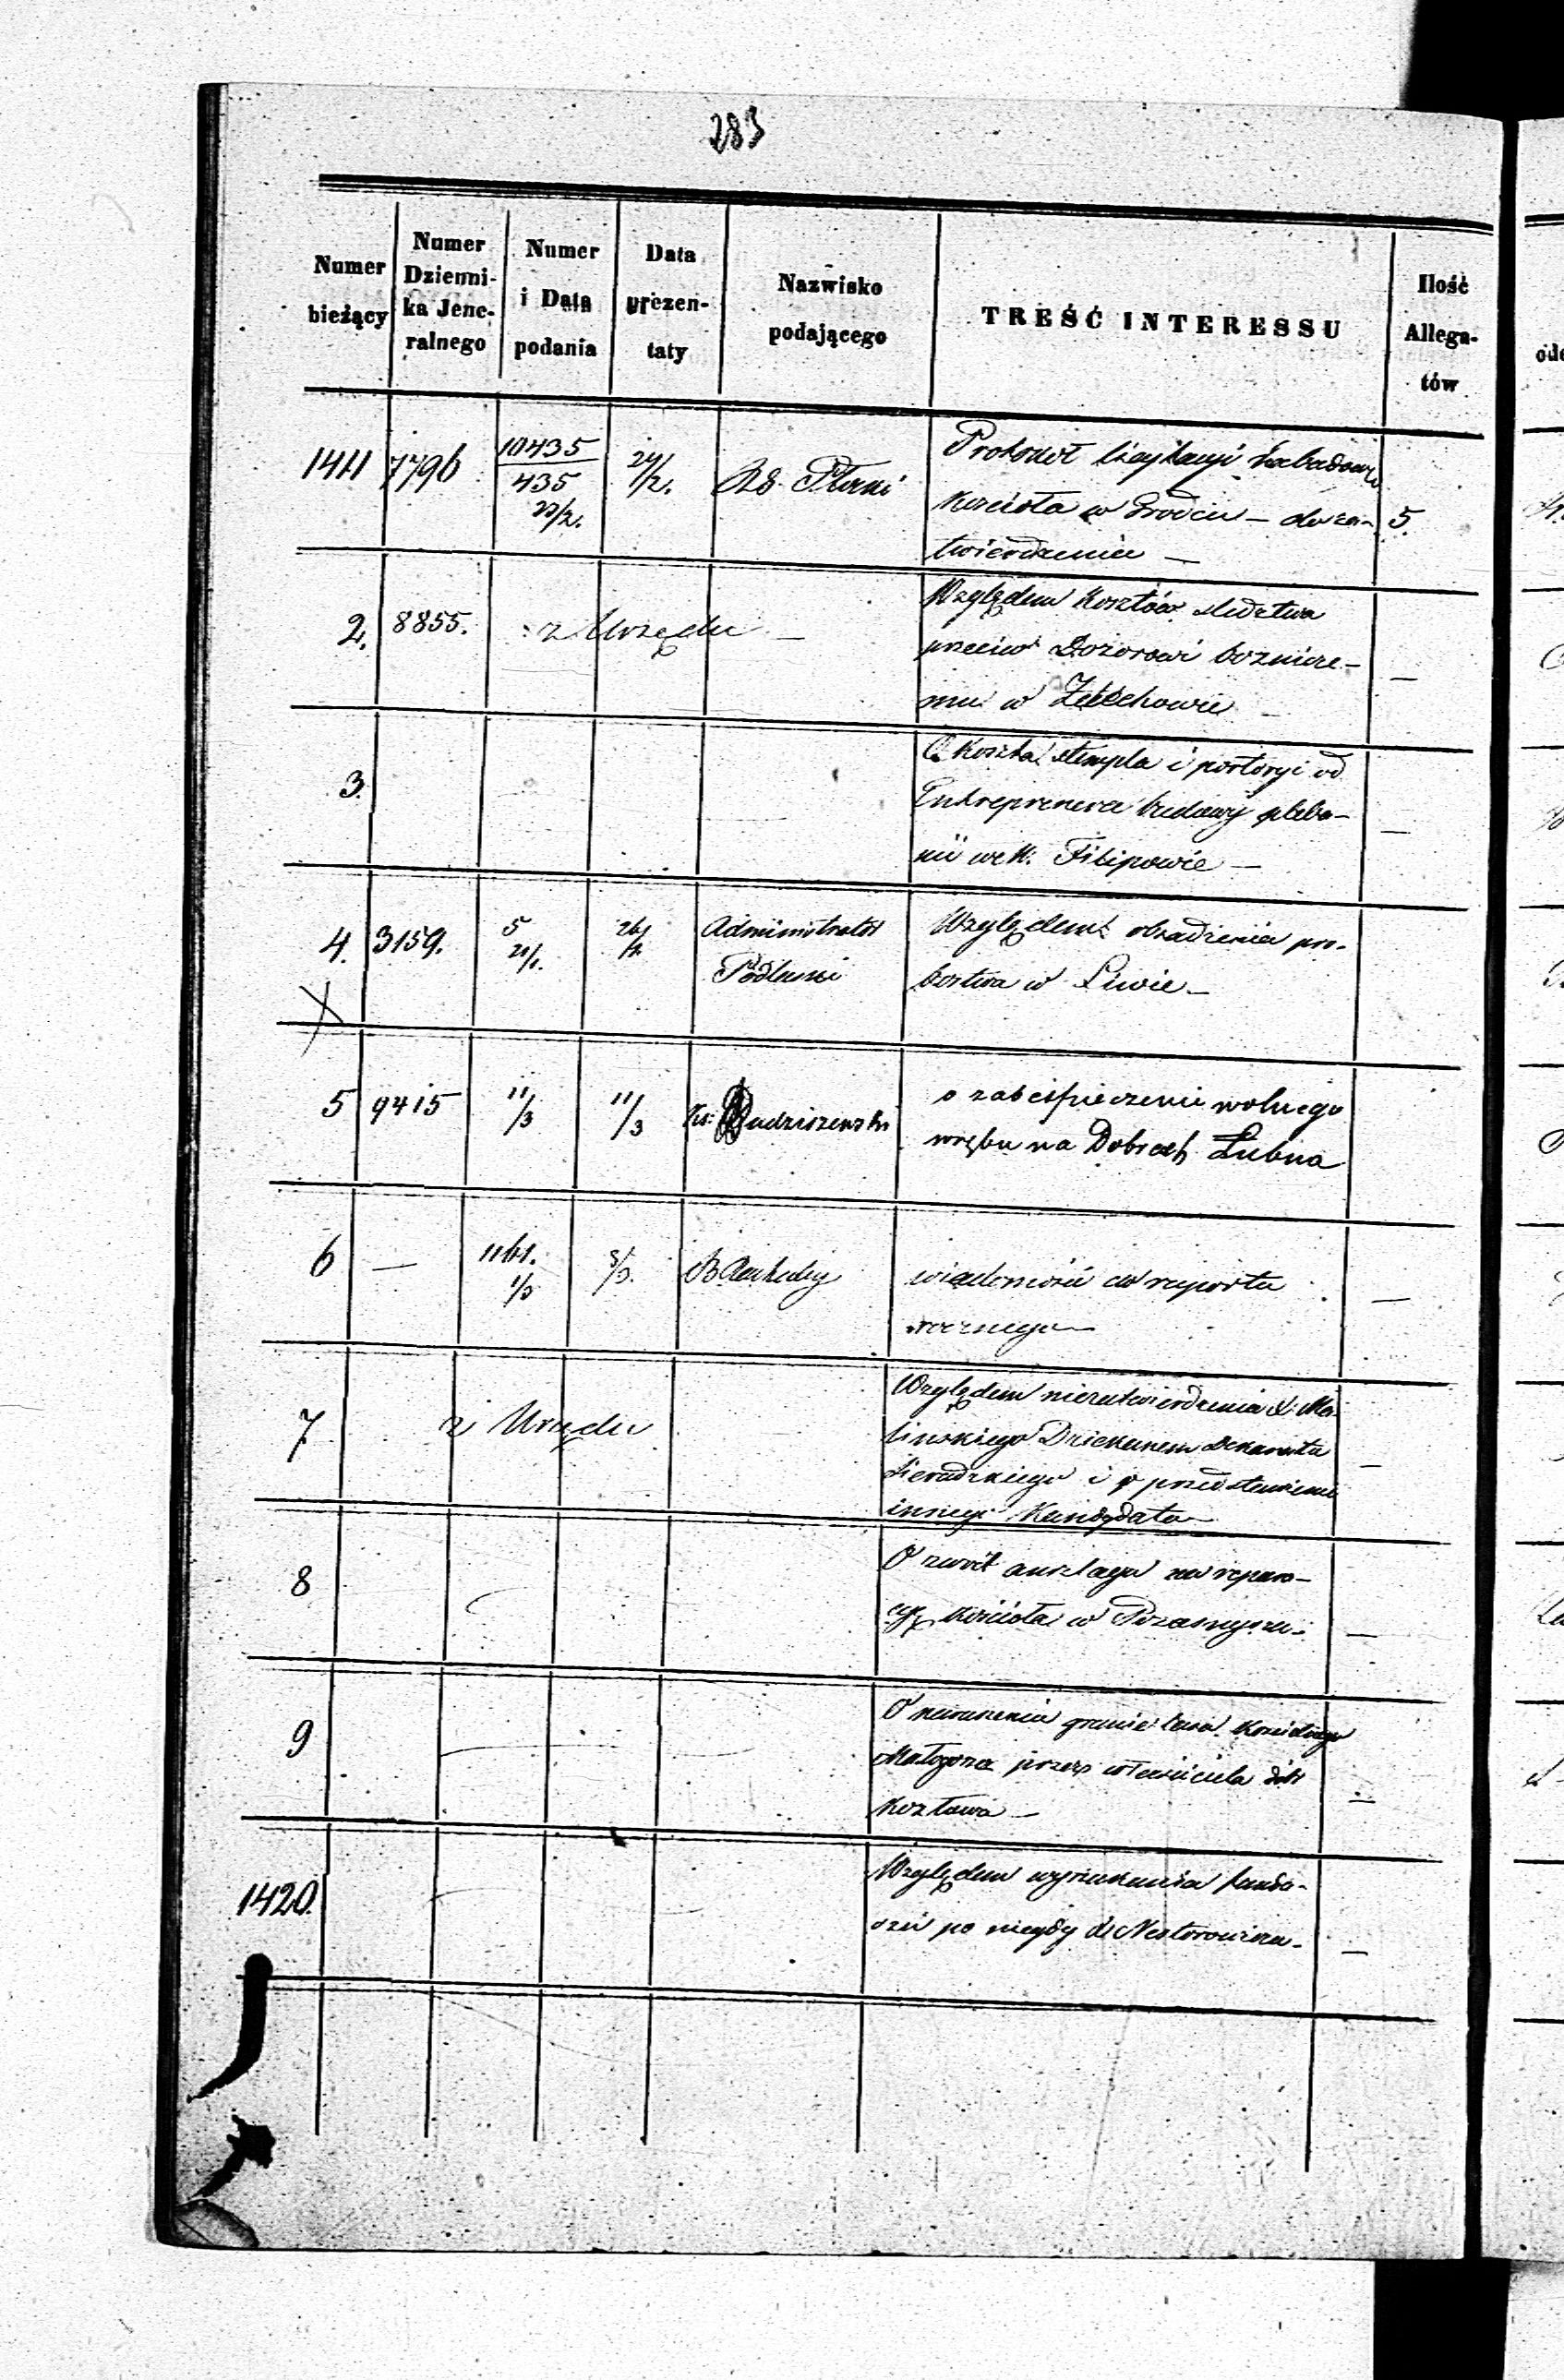 283
Numer bieżący
Numer Dzienni-ka Jene-ralnego
Numer i Data podania
Data prezen-taty
Nazwisko podającego
TREŚĆ INTERESSU
Ilość Allega-tów
1411 7796 10435 24/2. Rd. Płocki Protokół licytacyi
435
23/2.
kościoła w Grodcu – do za- 5.
twierdzenia –
2. 8855. z Urzędu – Względem kosztów śledztwa
przeciw Dozorowi bożnicze-
mu w Żelechowie –
3. O koszta stempla i portoryi od
Entreprenera budowy pleba-
nii we W. Filipowie –
4. 3159. 5 Administrator Względem obsadzenia pro-
21/1. Podlaski bostwa w Liwie –
5 9415 11/3 11/3 Ks: Budziszewski o zabespieczenie wolnego
wrębu na Dobrach Łubna
6 – 1161. 1/3 3/3. wiadomość do raportu
rocznego –
7 z Urzędu Względem niezatwierdzenia X. Ma-
lińskiego Dziekanem Dekanatu
Sieradzkiego i o przedstawienie
innego Kandydata –
8 O zwrot anszlagu na repara-
cyę kościoła w Przasnyszu. –
9 O naruszenia granic lasu
Małogoszcz przez właściciela dóbr
1420. Względem wyszukania fundu-
szu po niegdy X. Nestorowiczu. –